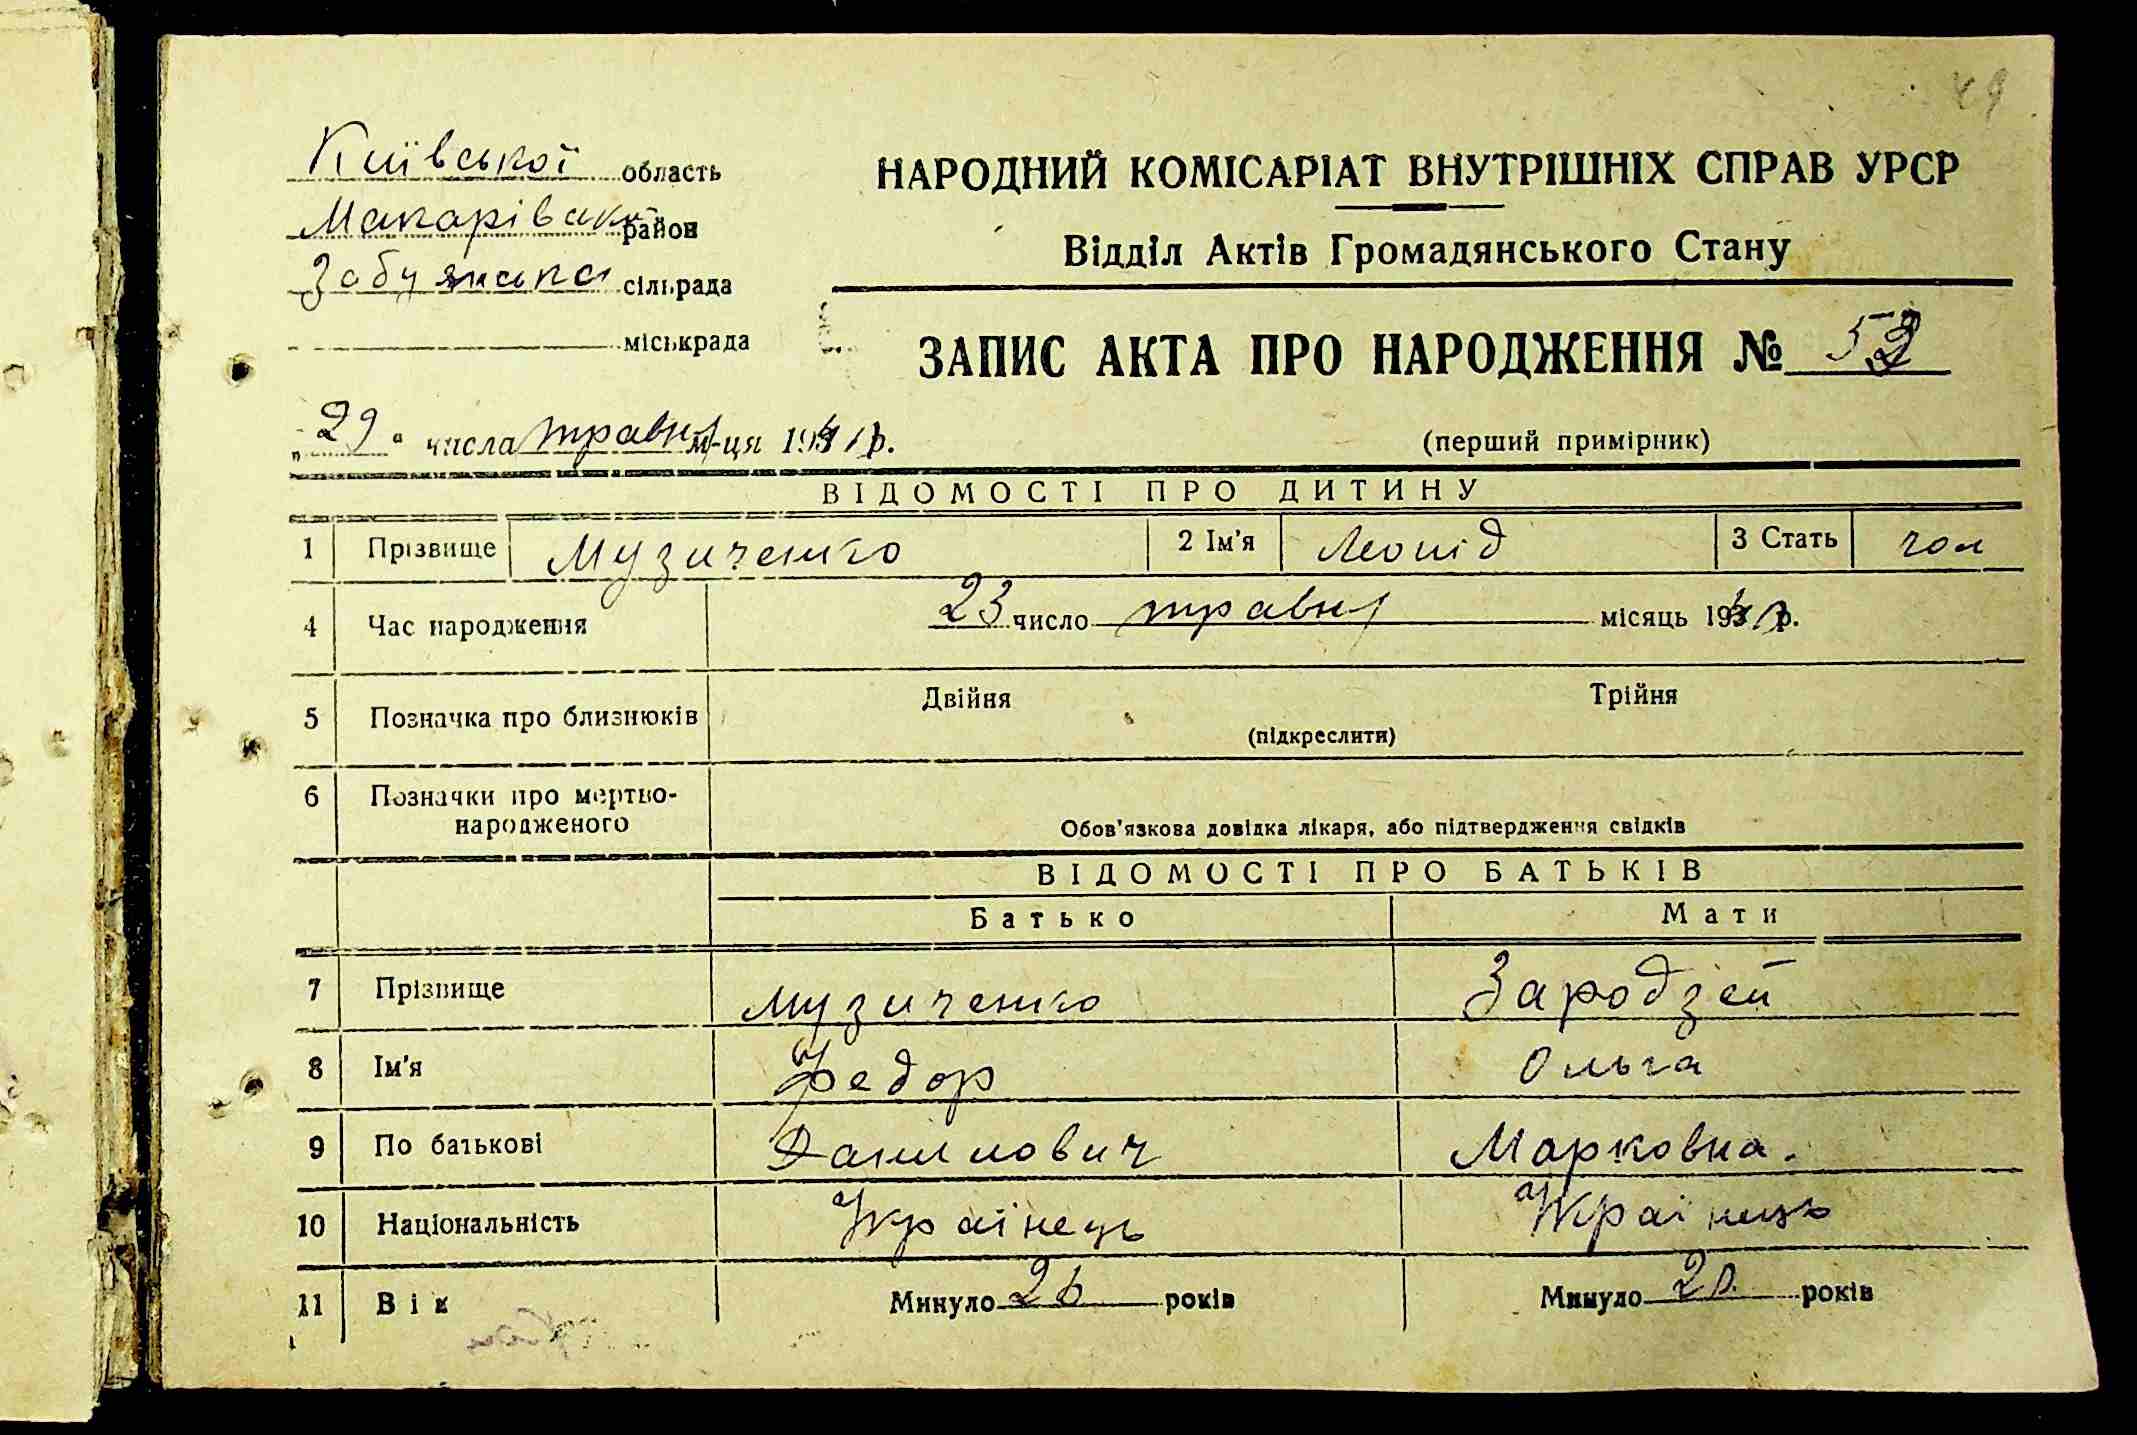 49
Київської область
НАРОДНИЙ КОМІСАРІАТ ВНУТРІШНІХ СПРАВ УРСР
Макарівський район
Відділ Актів Громадянського Стану
Забуянська сільрада
міськрада
ЗАПИС АКТА ПРО НАРОДЖЕННЯ № 52
„29“ числа травня м-ця 1941 р.
(перший примірник)
ВІДОМОСТІ ПРО ДИТИНУ
1 Прізвище Музиченко 2 Ім'я Леонід 3 Стать чол
4 Час народження 23 число травня місяць 1941 р.
5 Позначка про близнюків Двійня Трійня
(підкреслити)
6 Позначки про мертво-
народженого
Обов'язкова довідка лікаря, або підтвердження свідків
ВІДОМОСТІ ПРО БАТЬКІВ
Батько Мати
7 Прізвище Музиченко Зародзей
8 Ім'я Федор Ольга
9 По батькові Данилович Марковна.
10 Національність Українець Українець
11 Вік Минуло 26 років Минуло 20 років